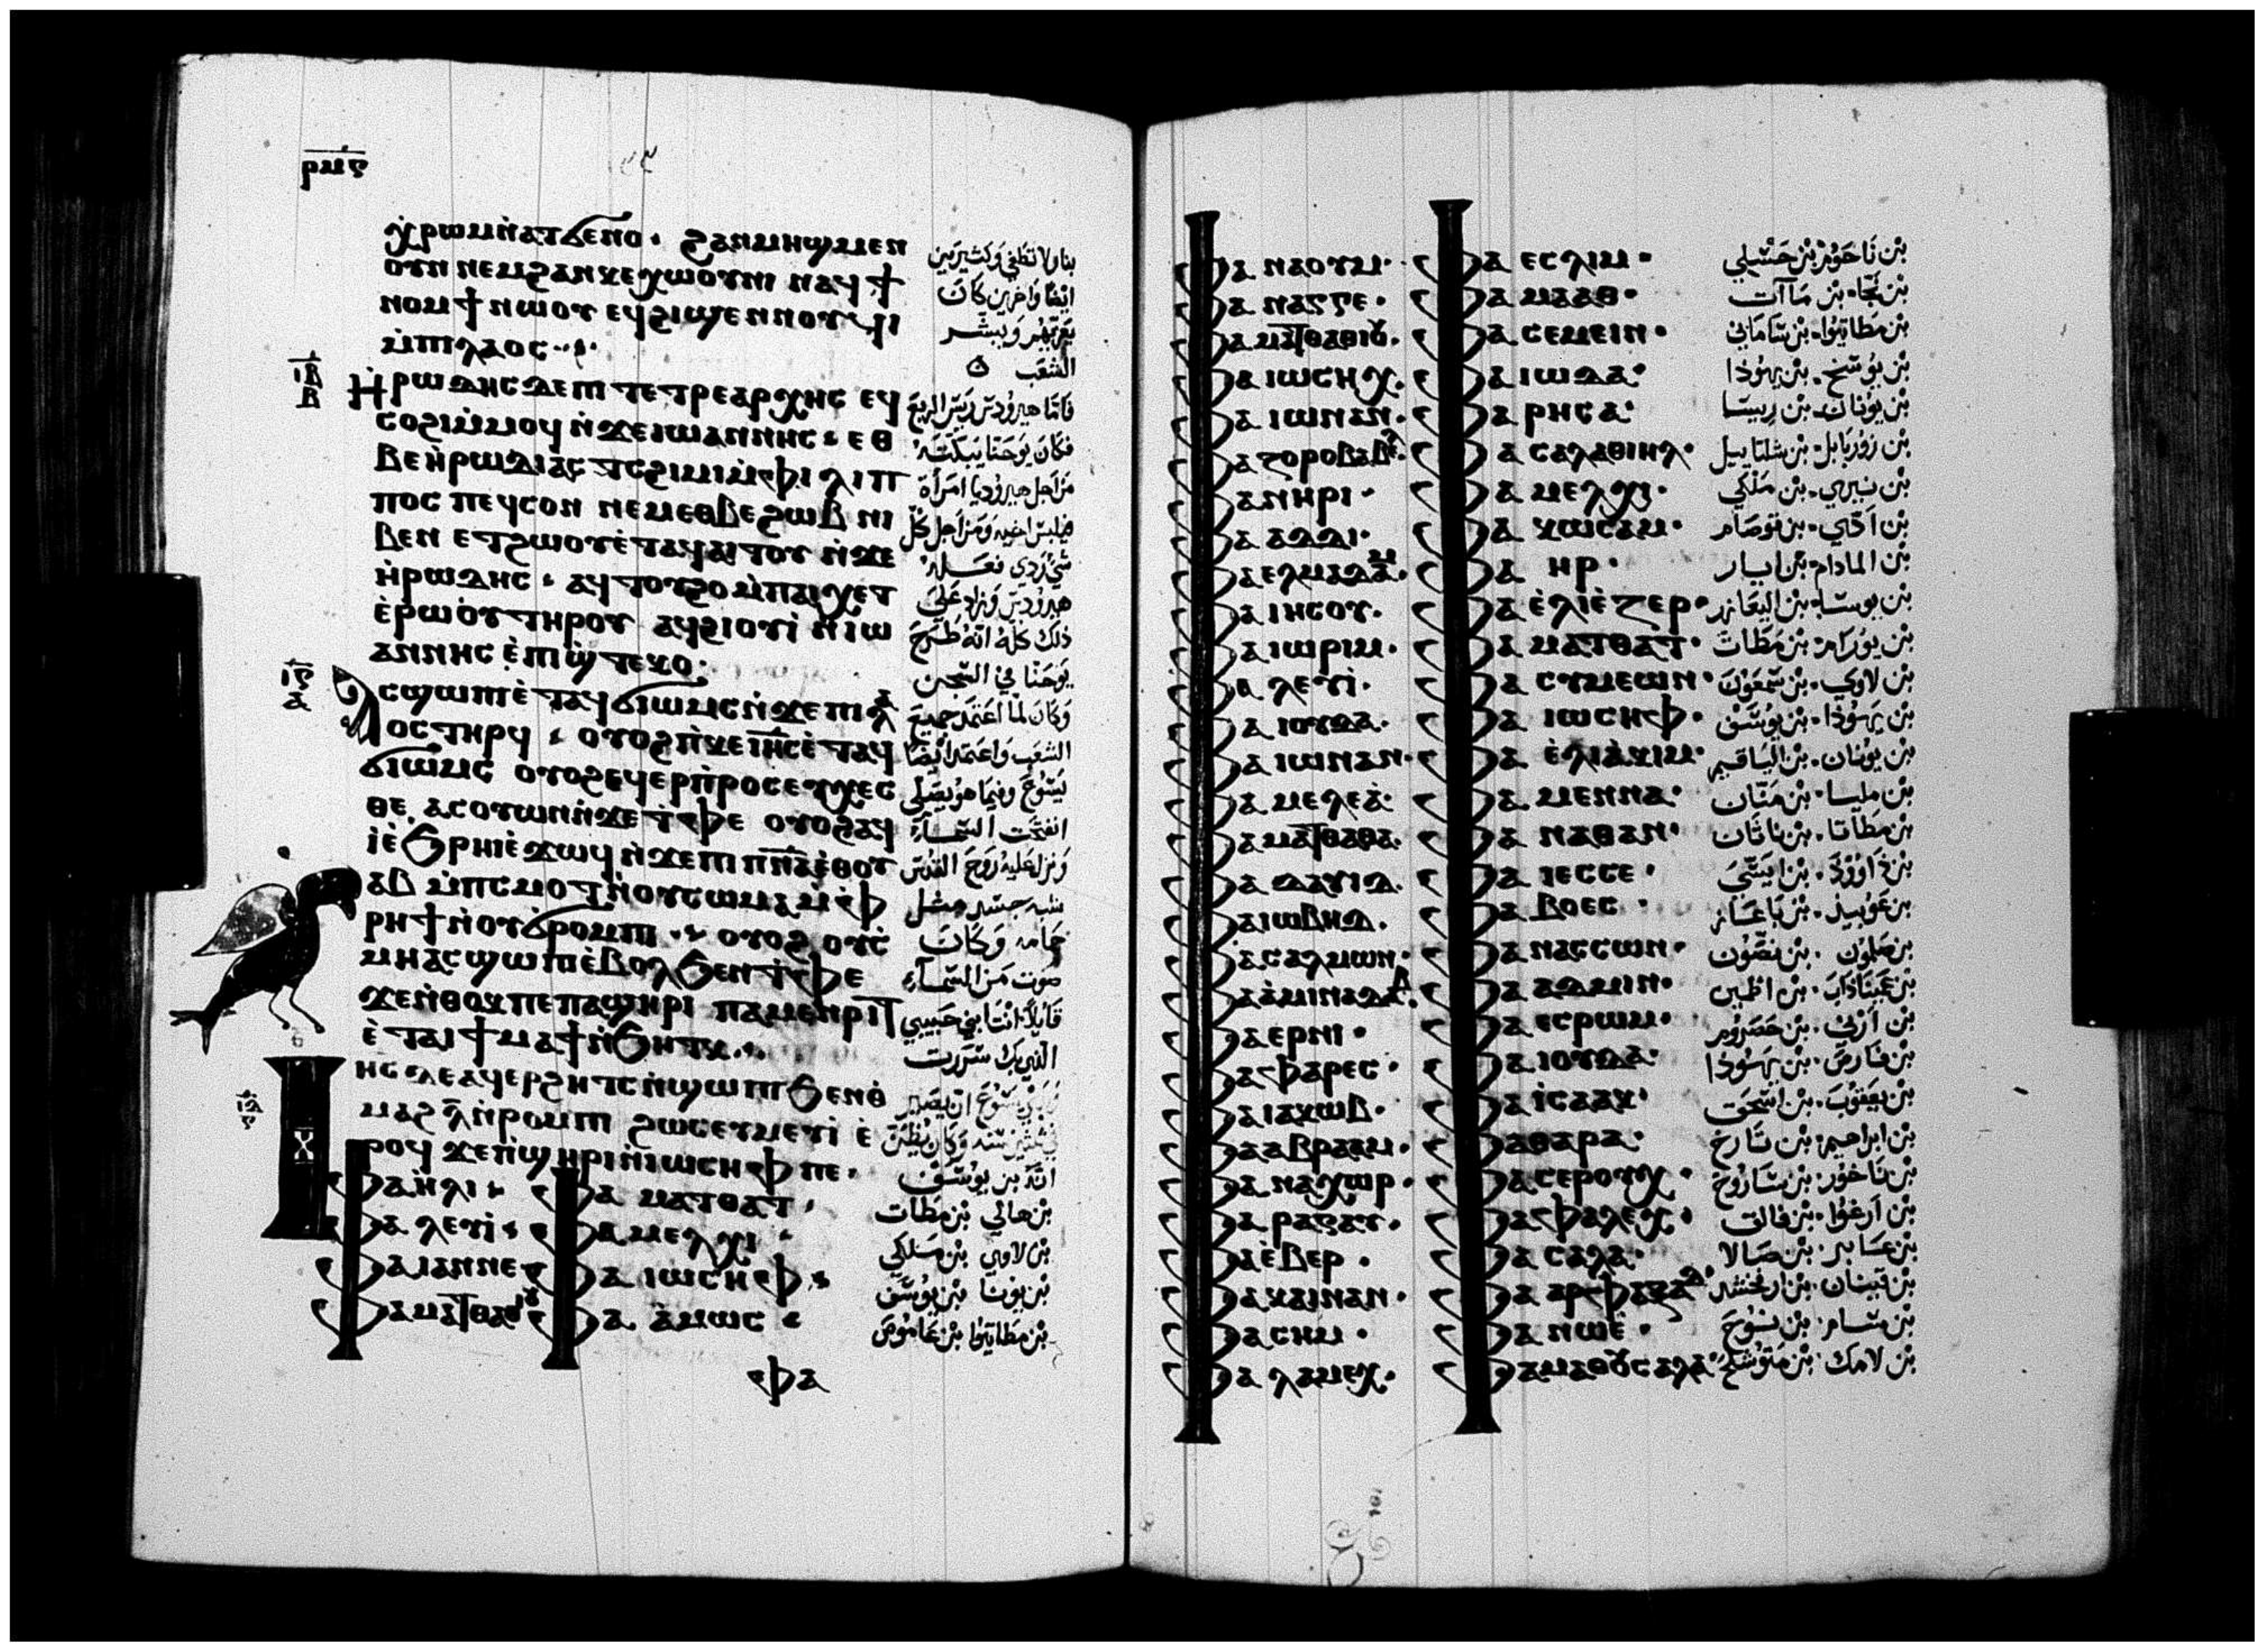 ⲣⲙⲋ
ⲭⲣⲱⲙ ⲛ̀ⲁⲧϭⲉⲛⲟ · ϩⲁⲛⲙⲏϣ ⲙⲉⲛ
ⲟⲩⲛ ⲛⲉⲙ ϩⲁⲛⲕⲉⲭⲱⲟⲩⲛⲓ ⲛⲁϥϯ
ⲛⲟⲙϯ ⲛⲱⲟⲩ ⲉϥϩⲓϣⲉⲛⲛⲟⲩϥⲓ
ⲙ̀ⲡⲓⲗⲁⲟⲥ
ⲏⲣⲱⲇⲏⲥ ⲇⲉ ⲡⲓⲧⲉⲧⲣⲉⲁⲣⲭⲏⲥ ⲉϥ
ⲥⲟϩⲓ ⲙ̀ⲙⲟϥ ⲛ̀ϫⲉ ⲓⲱⲁⲛⲛⲏⲥ · ⲉⲑ
ⲃⲉ ⲏ̀ⲣⲱⲇⲓⲁⲥ ⲧⲥϩⲓⲙⲓ ⲙ̀ⲫⲓⲗⲓⲡ
ⲡⲟⲥ ⲡⲉϥⲥⲟⲛ ⲛⲉⲙ ⲉⲑⲃⲉ ϩⲱⲃ ⲛⲓ
ⲃⲉⲛ ⲉⲧϩⲱⲟⲩ ⲉ̀ⲧⲁϥⲁⲓⲧⲟⲩ ⲛ̀ϫⲉ
ⲏ̀ⲣⲱⲇⲏⲥ · ⲁϥⲧⲟⲩϩⲟ ⲙ̀ⲡⲁⲓⲭⲉⲧ
ⲉ̀ⲣⲱⲟⲩ ⲧⲏⲣⲟⲩ ⲁϥϩⲓⲟⲩⲓ̀ ⲛ̀ⲓⲱ
ⲁⲛⲛⲏⲥ ⲉ̀ⲡⲓϣ̀ⲧⲉⲕⲟ ·
ⲁⲥϣⲱⲡⲓ ⲉ̀ⲧⲁϥϭⲓⲱⲙⲥ ⲛ̀ϫⲉ ⲡⲓⲗⲁ
ⲟⲥ ⲧⲏⲣϥ · ⲟⲩⲟϩ ⲡ̀ⲕⲉ ⲓⲏⲥ ⲉ̀ⲧⲁϥ
ϭⲓⲱⲙⲥ ⲟⲩⲟϩ ⲉϥⲉⲣⲡ̀ⲣⲟⲥⲉⲩⲭⲉⲥ
ⲑⲉ ⲁⲥⲟⲩⲱⲛ ⲛ̀ϫⲉ ⲧ̀ⲫⲉ ⲟⲩⲟϩ ⲁϥ
ⲓ̀ ⲉ̀ϧⲣⲏⲓ ⲉ̀ϫⲱϥ ⲛ̀ϫⲉ ⲡⲓⲡⲛⲁ ⲉ̀ⲑⲟⲩ
ⲁⲃ ⲙ̀ⲡⲥⲙⲟⲧ ⲛ̀ⲟⲩⲥⲱⲙⲁ ⲙ̀ⲫ
ⲣⲏϯ ⲛ̀ⲟⲩϭⲣⲟⲙⲡⲓ · ⲟⲩⲟϩ ⲟⲩⲥ̀
ⲙⲏ ⲁⲥϣⲱⲡⲓ ⲉ̀ⲃⲟⲗϧⲉⲛ ⲧ̀ⲫⲉ
ϫⲉ ⲛ̀ⲑⲟⲕ ⲡⲉ ⲡⲁϣⲏⲣⲓ ⲡⲁⲙⲉⲛⲣⲓⲧ
ⲉ̀ⲧⲁⲓϯⲙⲁϯ ⲛ̀ϧⲏⲧⲕ
ⲓⲏⲥ ⲇⲉ ⲁϥⲉⲣϩⲏⲧⲥ ⲛ̀ϣⲱⲡⲓ ϧⲉⲛ ⲑ̀
ⲙⲁϩ ⲗ̅ ⲛ̀ⲣⲟⲙⲡⲓ ϩⲱⲥ ⲉⲩⲙⲉⲩⲓ̀ ⲉ̀
ⲣⲟϥ ϫⲉ ⲡ̀ϣⲏⲣⲓ ⲛ̀ⲓⲱⲥⲏⲫ ⲡⲉ ·
ⲫⲁ ⲏ̀ⲗⲓ · ⲫⲁ ⲙⲁⲧⲑⲁⲧ ·
ⲫⲁ ⲗⲉⲩⲓ̀ · ⲫⲁ ⲙⲉⲗⲭⲓ ·
ⲫⲁ ⲓⲁⲛⲛⲉ ⲫⲁ ⲓⲱⲥⲏⲫ ·
ⲫⲁ ⲙⲁⲧⲑⲁⲑⲓⲟⲩ ⲫⲁ ⲁⲙⲱⲥ ·
ⲫⲁ
ⲓⲃ
ⲃ
ⲓⲅ
ⲁ
ⲓⲇ
ⲅ
بنار لا تطفى وكثيرين
ايضا واخرين كان
يعزيهم ويبشر
الشعب
فاما هيرودس رييس الربع
فكان يوحنا يبكته
من اجل هيروديا امرأة
فيلبس اخيه ومن اجل كل
شي ردي فعله
هيرودس وزاد على
ذلك كله انه طرح
يوحنا في السجن
وكان لما اعتمد جميع
الشعب واعتمد ايضا
يسوع وفيما هو يصلي
انفتحت السماء
ونزل عليه روح القدس
شبه جسد مثل
حمامه وكان
صوت من السماء
قايلا انت ابني حبيبي
الذي بك سررت
انه بن يوسف
بن هالي بن مطات
بن لاوي بن ملكي
بن يونا بن يوسف
بن مطاتيوا بن عاموص
ⲫⲁ ⲛⲁⲟⲩⲙ · ⲫⲁ ⲉⲥⲗⲓⲙ · بن ناحوم بن حسلي
ⲫⲁ ⲛⲁⲅⲅⲉ · ⲫⲁ ⲙⲁⲁⲑ · بن نجا · بن ماآت
ⲫⲁ ⲙⲁⲧⲑⲁⲑⲓⲟⲩ · ⲫⲁ ⲥⲉⲙⲉⲓⲛ · بن مطاتيوا · بن سامانى
ⲫⲁ ⲓⲱⲥⲏⲭ · ⲫⲁ ⲓⲱⲇⲁ · بن يوسخ · بن يهوذا
ⲫⲁ ⲓⲱⲛⲁⲛ · ⲫⲁ ⲣⲏⲥⲁ · بن يونان · بن ريسا
ⲫⲁ ⲍⲟⲣⲟⲃⲁⲃⲉⲗ · ⲫⲁ ⲥⲁⲗⲁⲑⲓⲏⲗ · بن زوربابل · بن شلتاييل
ⲫⲁ ⲛⲏⲣⲓ · ⲫⲁ ⲙⲉⲗⲭⲓ · بن نيري · بن ملكي
ⲫⲁ ⲁⲇⲇⲓ · ⲫⲁ ⲕⲱⲥⲁⲙ · بن ادي · بن قوصام
ⲫⲁ ⲉⲗⲙⲁⲇⲁⲙ · ⲫⲁ ⲏⲣ · بن المادام · بن ايار
ⲫⲁ ⲓⲏⲥⲟⲩ · ⲫⲁ ⲉ̀ⲗⲓⲉ̀ⲍⲉⲣ · بن يوسا · بن اليعازر
ⲫⲁ ⲓⲱⲣⲓⲙ · ⲫⲁ ⲙⲁⲧⲑⲁⲧ · بن يورام · بن مطات
ⲫⲁ ⲗⲉⲩⲓ̀ · ⲫⲁ ⲥⲩⲙⲉⲱⲛ · بن لاوي · بن شمعون
ⲫⲁ ⲓⲟⲩⲇⲁ · ⲫⲁ ⲓⲱⲥⲏⲫ · بن يهوذا · بن يوسف
ⲫⲁ ⲓⲱⲛⲁⲛ · ⲫⲁ ⲉ̀ⲗⲓⲁ̀ⲕⲓⲙ · بن يونان · بن الياقيم
ⲫⲁ ⲙⲉⲗⲉⲁ̀ · ⲫⲁ ⲙⲉⲛⲛⲁ · بن مليا · بن منان
ⲫⲁ ⲙⲁⲧⲑⲁⲑⲁ · ⲫⲁ ⲛⲁⲑⲁⲛ · بن مطاتا · بن ناثان
ⲫⲁ ⲇⲁⲩⲓⲇ · ⲫⲁ ⲓⲉⲥⲥⲉ · بن داوود · بن ايسي
ⲫⲁ ⲓⲱⲃⲏⲇ · ⲫⲁ ⲃⲟⲉⲥ · بن عوبيد · بن باعاز
ⲫⲁ ⲥⲁⲗⲙⲱⲛ · ⲫⲁ ⲛⲁⲥⲥⲱⲛ · بن صلمون · بن نصون
ⲫⲁ ⲁ̀ⲙⲓⲛⲁⲇⲁⲃ · ⲫⲁ ⲁⲇⲙⲓⲛ · بن عميناداب · بن
ⲫⲁ ⲉⲣⲛⲓ · ⲫⲁ ⲉⲥⲣⲱⲙ · بن ارني · بن حصروم
ⲫⲁ ⲫⲁⲣⲉⲥ · ⲫⲁ ⲓⲟⲩⲇⲁ · بن فارص · بن يهوذا
ⲫⲁ ⲓⲁⲕⲱⲃ · ⲫⲁ ⲓ̀ⲥⲁⲁⲕ · بن يعقوب · بن اسحق
ⲫⲁ ⲁⲃⲣⲁⲁⲙ · ⲫⲁ ⲑⲁⲣⲁ · بن ابراهيم · بن تارخ
ⲫⲁ ⲛⲁⲭⲱⲣ · ⲫⲁ ⲥⲉⲣⲟⲩⲭ · بن ناخور · بن ساروخ
ⲫⲁ ⲣⲁⲅⲁⲩ · ⲫⲁ ⲫⲁⲗⲉⲭ · بن ارغوا · بن فالق
ⲫⲁ ⲉ̀ⲃⲉⲣ · ⲫⲁ ⲥⲁⲗⲁ · بن عابر · بن صالا
ⲫⲁ ⲕⲁⲓⲛⲁⲛ · ⲫⲁ ⲁⲣⲫⲁⲝⲁⲇ · بن قينان · بن ارفخشد
ⲫⲁ ⲥⲏⲙ · ⲫⲁ ⲛⲱⲉ̀ · بن سام · بن نوح
ⲫⲁ ⲗⲁⲙⲉⲭ · ⲫⲁ ⲙⲁⲑⲟⲩⲥⲁⲗⲁ · بن لامك · بن متوشلح